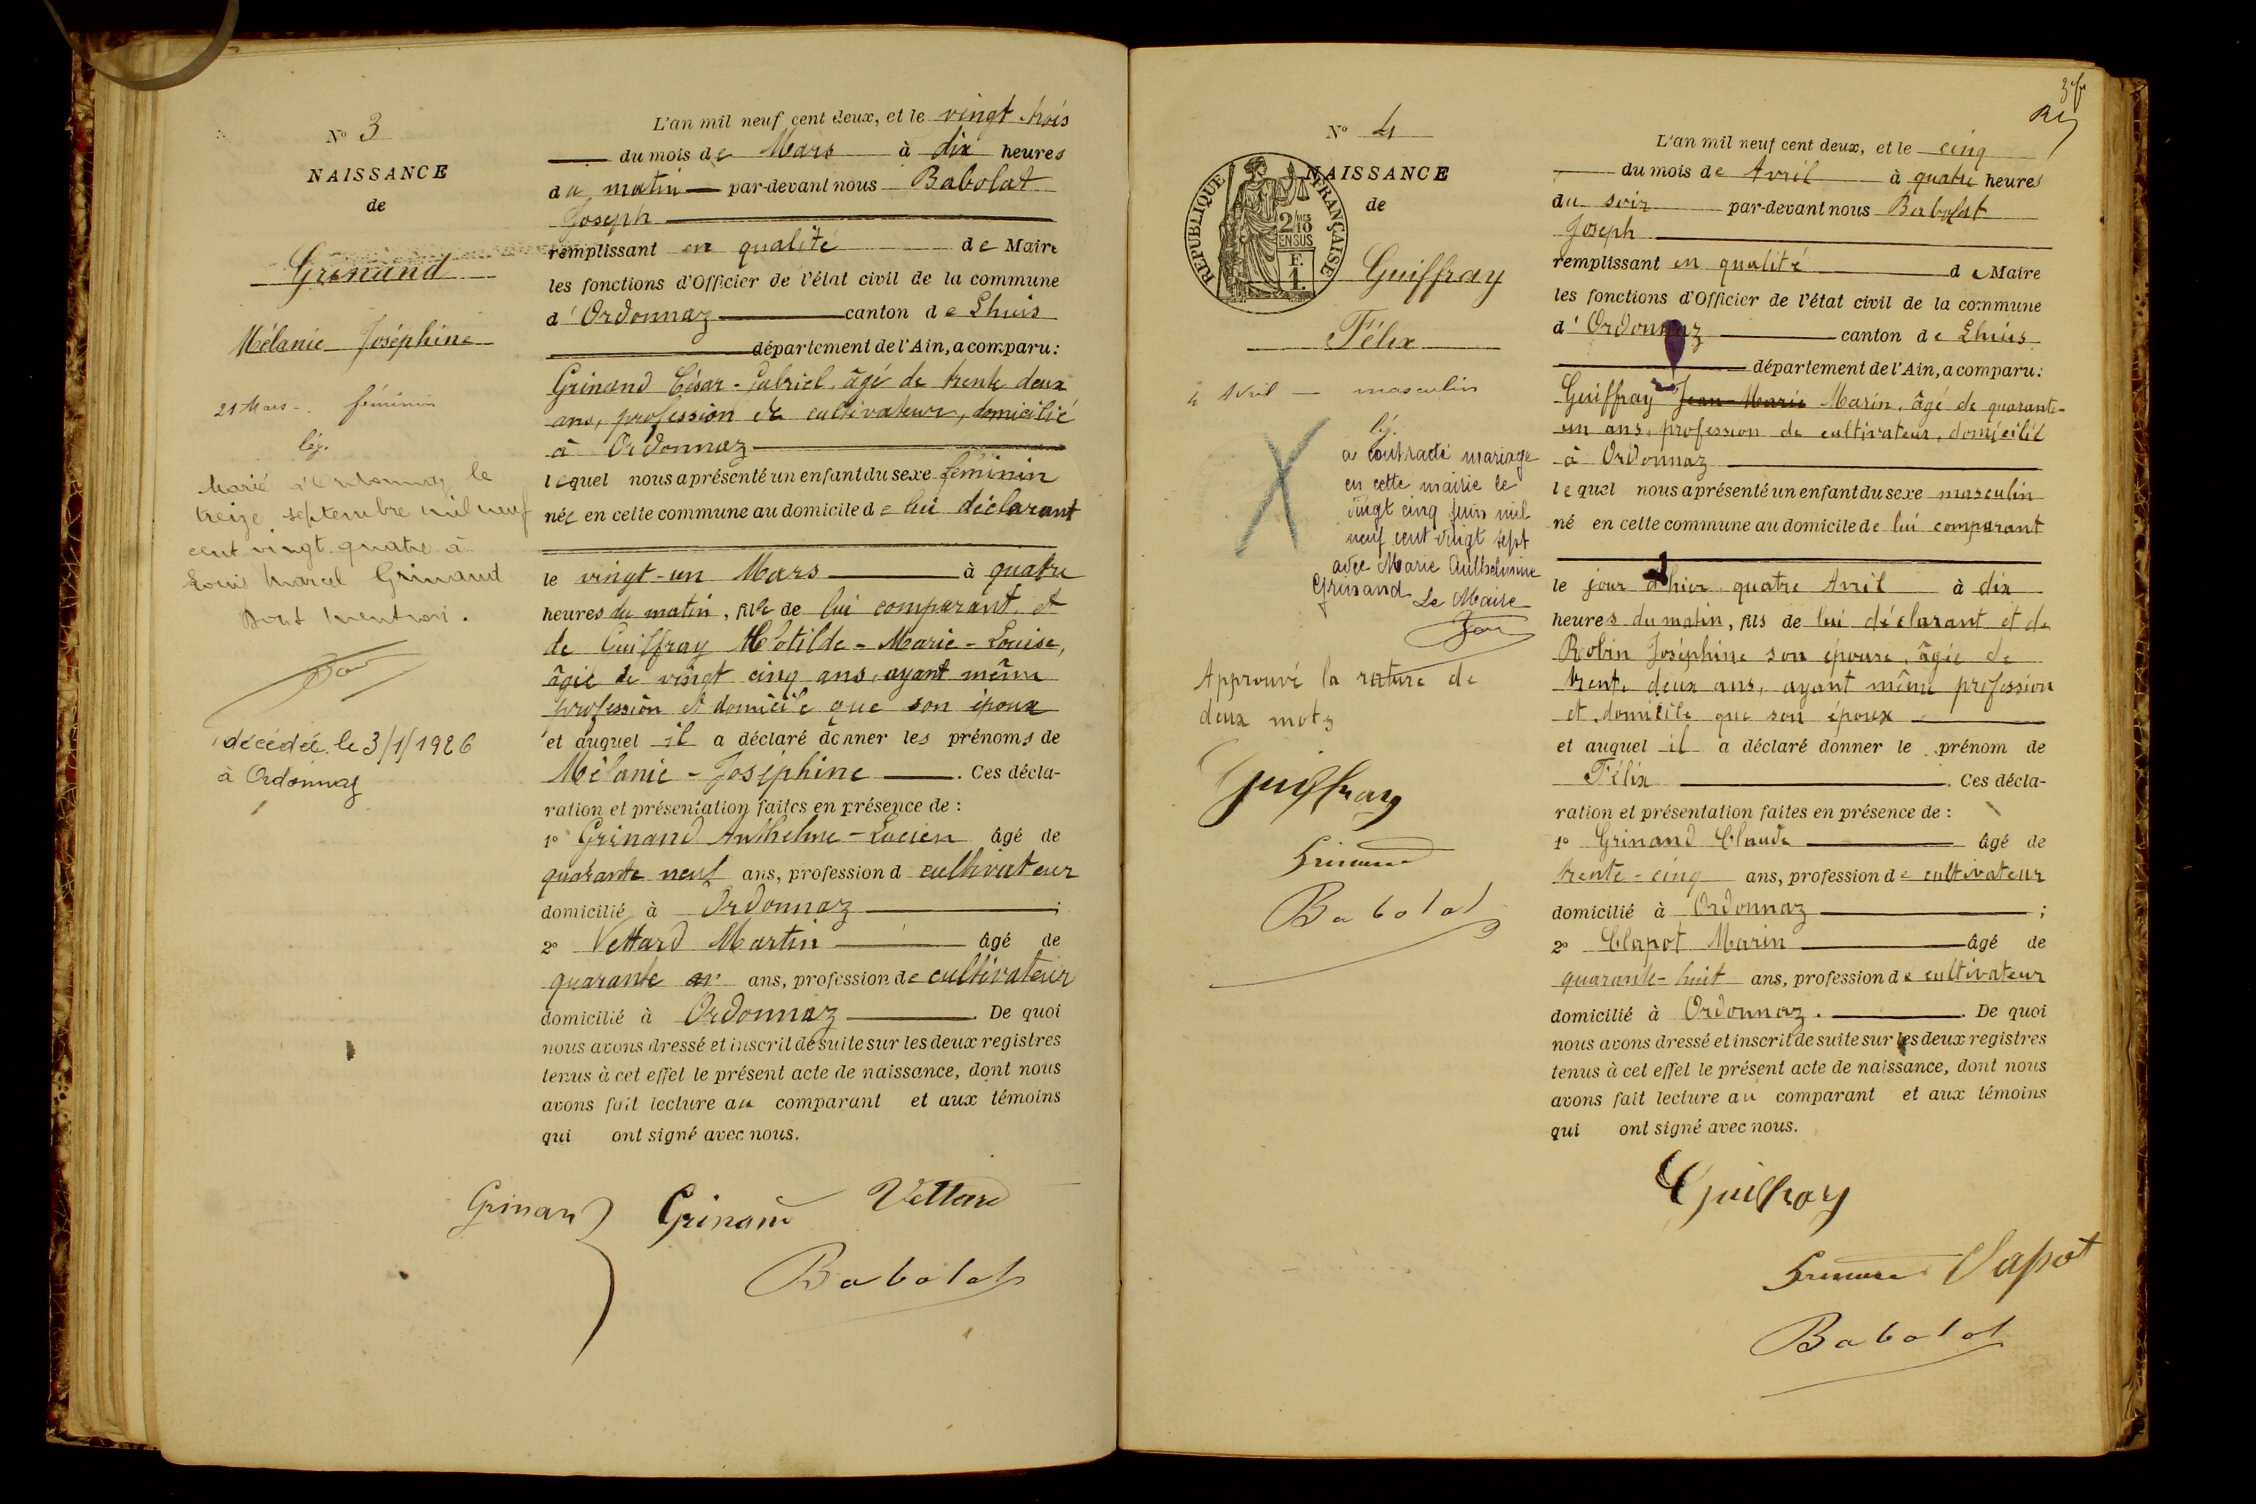 N° 3
NAISSANCE
de
Grinand
Mélanie Joséphine
21 Mars - féminin
lég.
Marié à Ordonnaz le
treize septembre mil neuf
cent vingt quatre à
Louis Marcel Grinand
Dont mention.
décédée le 3/1/1926
à Ordonnaz
L'an mil neuf cent deux, et le vingt trois
du mois de Mars à dix heures
du matin par-devant nous Babolat
Joseph
remplissant en qualité de Maire
les fonctions d'Officier de l'état civil de la commune
d'Ordonnaz canton de Lhuis
département de l'Ain, a comparu:
Grinand César-Gabriel, âgé de trente deux
ans, profession de cultivateur, domicilié
à Ordonnaz
lequel nous a présenté un enfant du sexe féminin
née en cette commune au domicile de lui déclarant
le vingt-un Mars à quatre
heures du matin, fille de lui comparant et
de Guiffray Clotilde-Marie-Louise,
âgée de vingt cinq ans, ayant même
profession et domicile que son époux
et auquel il a déclaré donner les prénoms de
Mélanie-Joséphine. Ces décla-
ration et présentation faites en présence de:
1° Grinand Anthelme-Lucien âgé de
quarante neuf ans, profession d cultivateur
domicilié à Ordonnaz;
2° Vettard Martin âgé de
quarante ans, profession de cultivateur
domicilié à Ordonnaz. De quoi
nous avons dressé et inscrit de suite sur les deux registres
tenus à cet effet le présent acte de naissance, dont nous
avons fait lecture au comparant et aux témoins
qui ont signé avec nous.
Grinand Grinand Vettard
Babolat
N° 4
NAISSANCE
de
RÉPUBLIQUE FRANÇAISE
2/10 EN SUS
F. 1.
Guiffray
Félix
4 Avril - masculin
lég.
a contracté mariage
en cette mairie le
vingt cinq juin mil
neuf cent vingt sept
avec Marie Anthelmine
Grinand Le Maire
Approuvé la rature de
deux mots
Guiffray
Grinand
Babolat
L'an mil neuf cent deux, et le cinq
du mois de Avril à quatre heures
du soir par-devant nous Babolat
Joseph
remplissant en qualité de Maire
les fonctions d'Officier de l'état civil de la commune
d'Ordonnaz canton de Lhuis
département de l'Ain, a comparu:
Guiffray Jean-Marie Marin, âgé de quarante-
un ans, profession de cultivateur, domicilié
à Ordonnaz
lequel nous a présenté un enfant du sexe masculin
né en cette commune au domicile de lui comparant
le jour d'hier quatre Avril à dix
heures du matin, fils de lui déclarant et de
Robin Joséphine son épouse, âgée de
trente deux ans, ayant même profession
et domicile que son époux
et auquel il a déclaré donner le prénom de
Félix. Ces décla-
ration et présentation faites en présence de:
1° Grinand Claude âgé de
trente-cinq ans, profession de cultivateur
domicilié à Ordonnaz;
2° Clapot Marin âgé de
quarante-huit ans, profession de cultivateur
domicilié à Ordonnaz. De quoi
nous avons dressé et inscrit de suite sur les deux registres
tenus à cet effet le présent acte de naissance, dont nous
avons fait lecture au comparant et aux témoins
qui ont signé avec nous.
Guiffray
Grinand Clapot
Babolat